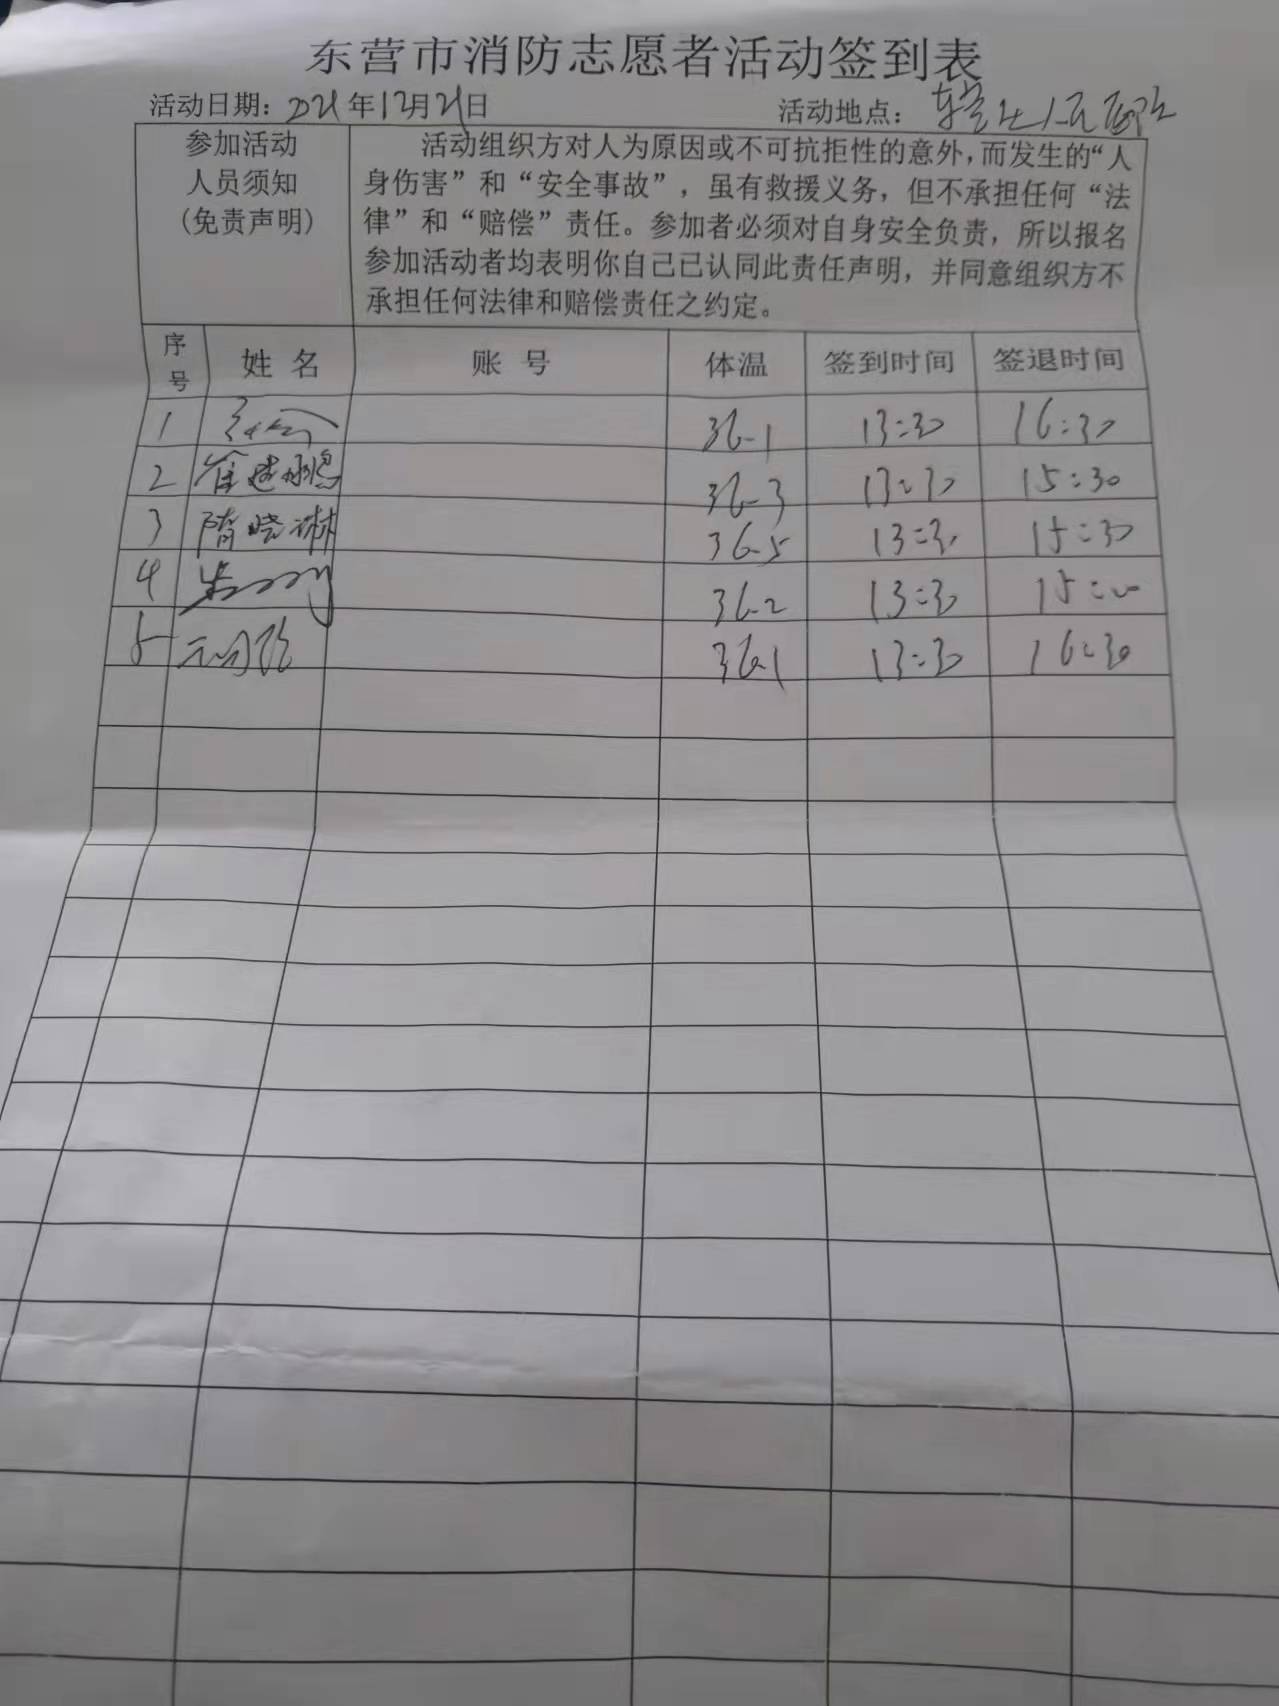 东营市消防志愿者活动签到表
活动日期：2021年12月21日 活动地点：东营市人民医院
参加活动
人员须知
（免责声明）
活动组织方对人为原因或不可抗拒性的意外，而发生的“人
身伤害”和“安全事故”，虽有救援义务，但不承担任何“法
律”和“赔偿”责任。参加者必须对自身安全负责，所以报名
参加活动者均表明你自己已认同此责任声明，并同意组织方不
承担任何法律和赔偿责任之约定。
序号 姓名 账号 体温 签到时间 签退时间
1 36.1 13:30 16:30
2 崔建鹏 36.3 13:30 15:30
3 隋晓琳 36.5 13:30 15:30
4 36.2 13:30 15:00
5 36.1 13:30 16:30